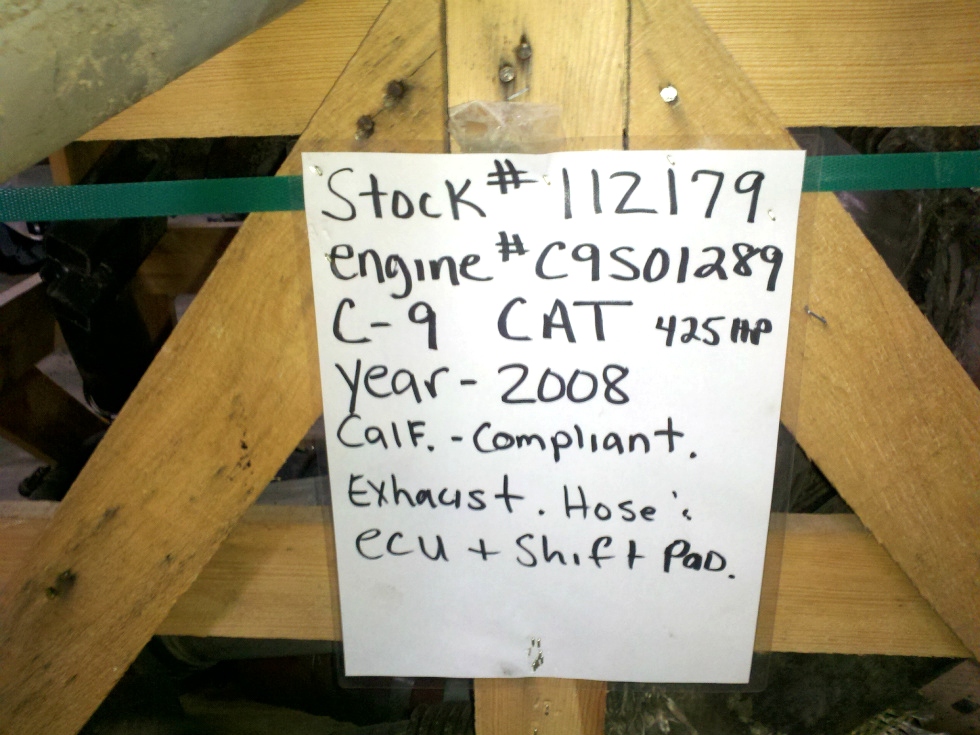 Stock# 112179
engine# C9S01289
C-9 CAT 425 HP
year - 2008
CalF. - Compliant.
Exhaust. Hose :
ecu + Shift Pad.